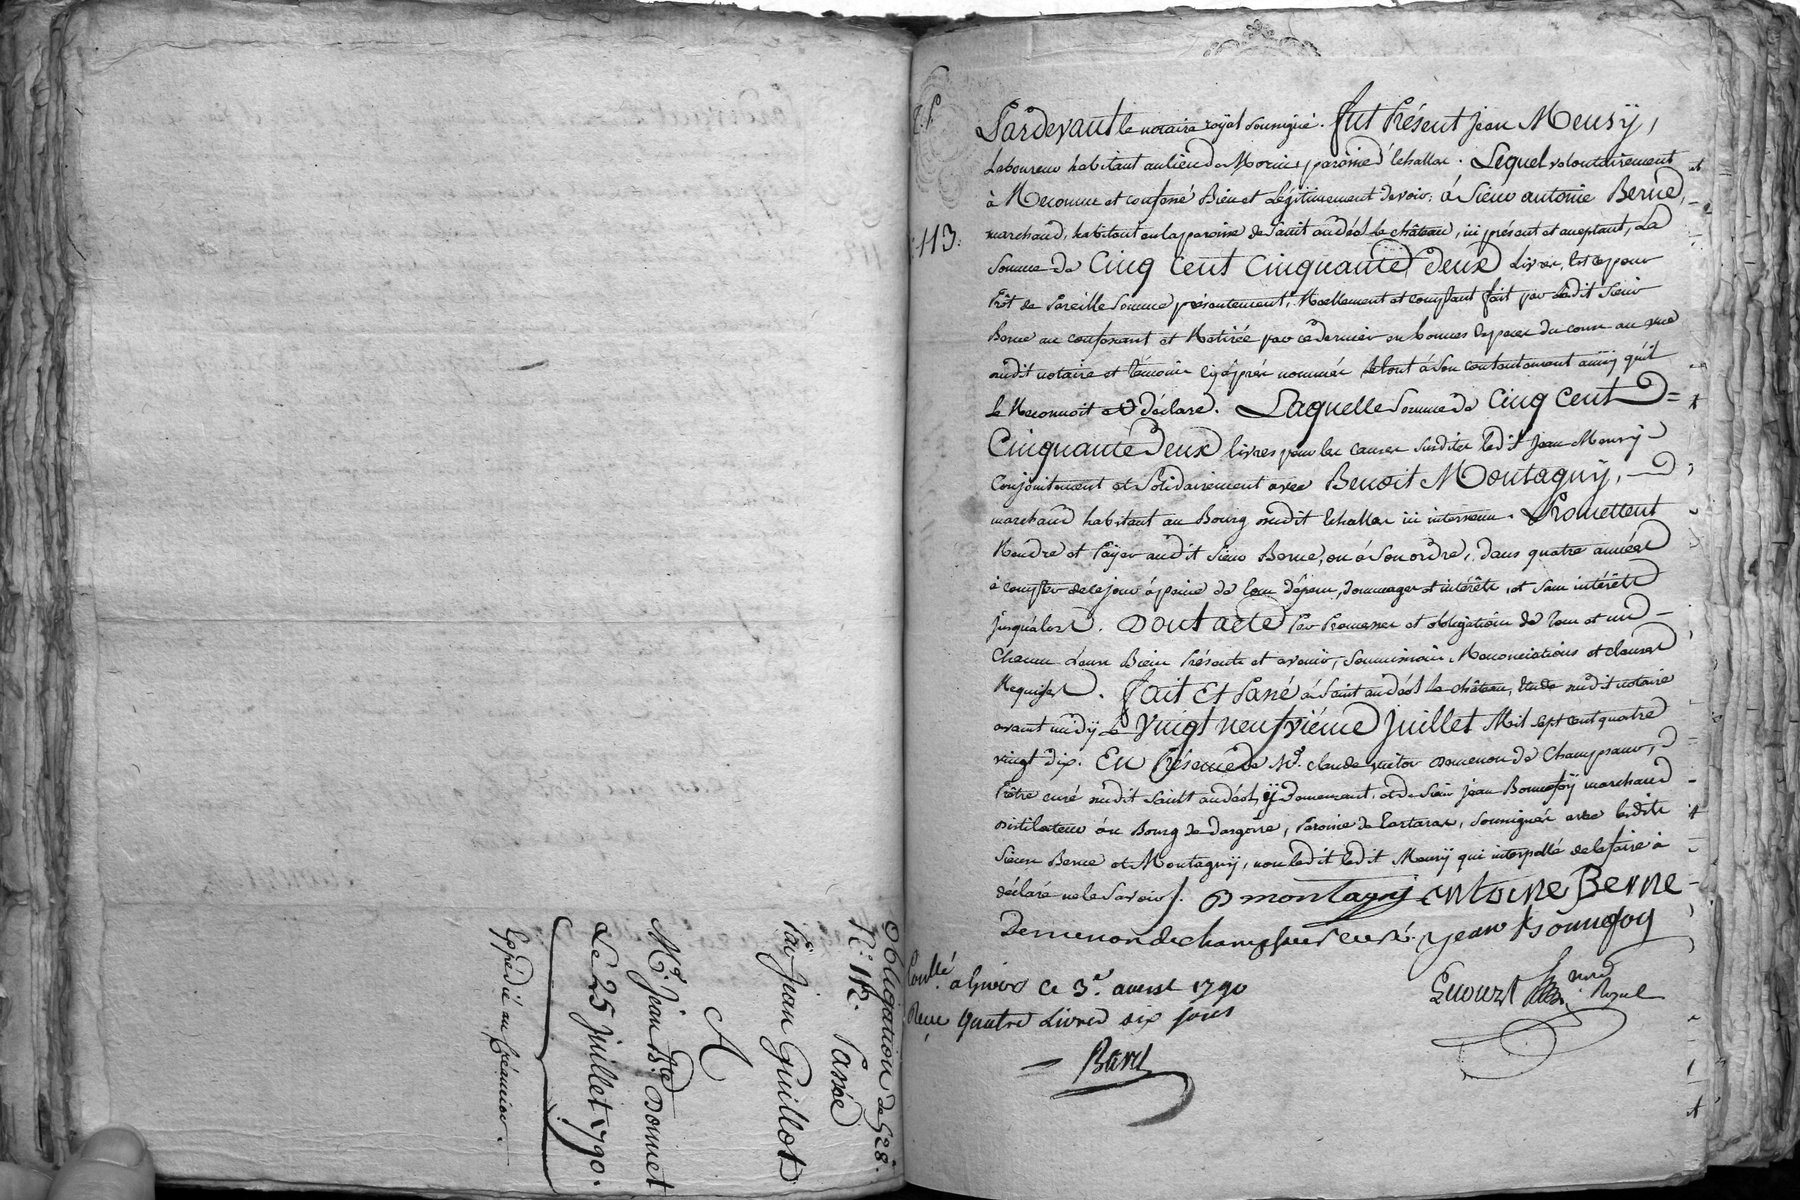 Obligation de 528.ᵗ
N.° 112. Passée
Par Jean Guillot
A
M.ᵉ Jean B.ᵗᵉ Donnet
Le 25 juillet 1790.
Expédié au créancier.
113.
Pardevant le notaire royal soussigné. fut Présent jean Meusÿ,
Laboureur habitant au lieu de paroisse d'Echallas. Lequel volontairement
à Reconnu et confessé Bien et Légitimement devoir, à Sieur antoine Berne,
marchand, habitant en la paroisse de Saint andéol le château, ici présent et acceptant, La
Somme de Cinq Cent Cinquante deux Livres, Et ce pour
Prêt de Pareille Somme présentement, Réellement et comptant fait par Ledit Sieur
Berne au confessant et Retirée par ce dernier en bonnes Espèces du cours au vue
dudit notaire et témoins cy après nommés Le tout à Son contentement ainsy qu'il
le Reconnoit et déclare. Laquelle Somme de Cinq Cent
Cinquante deux livres pour les causes Susdites ledit Jean Meusÿ
Conjointement et Solidairement avec Benoit Montagnÿ,
marchand habitant au Bourg dudit Echallas ici intervenu. Promettent
Rendre et Païer audit Sieur Berne, ou à Son ordre, dans quatre années
à compter de ce jour à peine de tous dépens, dommages et intérêts, et Sans intérêts
Jusqu'alors. Dont acte Par Promesses et obligations de tous et un
Chacun Leurs Biens Présents et avenir, Soumissions, Renonciations et clauses
Requises. fait Et Passé à Saint andéol le château, Etude dudit notaire
avant midÿ Le Vingt neufvième juillet Mil Sept cent quatre
vingt dix. En Présence de M.ʳᵉ claude victor Demenon de Champsaur,
Prêtre curé dudit Saint andéol, ÿ Demeurant, et de Sieur jean Bonnefoÿ marchand
distilateur au Bourg de dargoire, Paroisse de tartaras, Soussignés avec lesdits
Sieurs Berne et Montagnÿ, non ledit ledit Meusÿ qui interpellé de le faire à
déclaré ne le Savoir.
B montagny antoine Berne
Demenon de champsaur curé. jean Bonnefoy
Royal
Con.ˡˡé à Givors ce 3.ᵉ aoust 1790
Reçu quatre Livres six sous